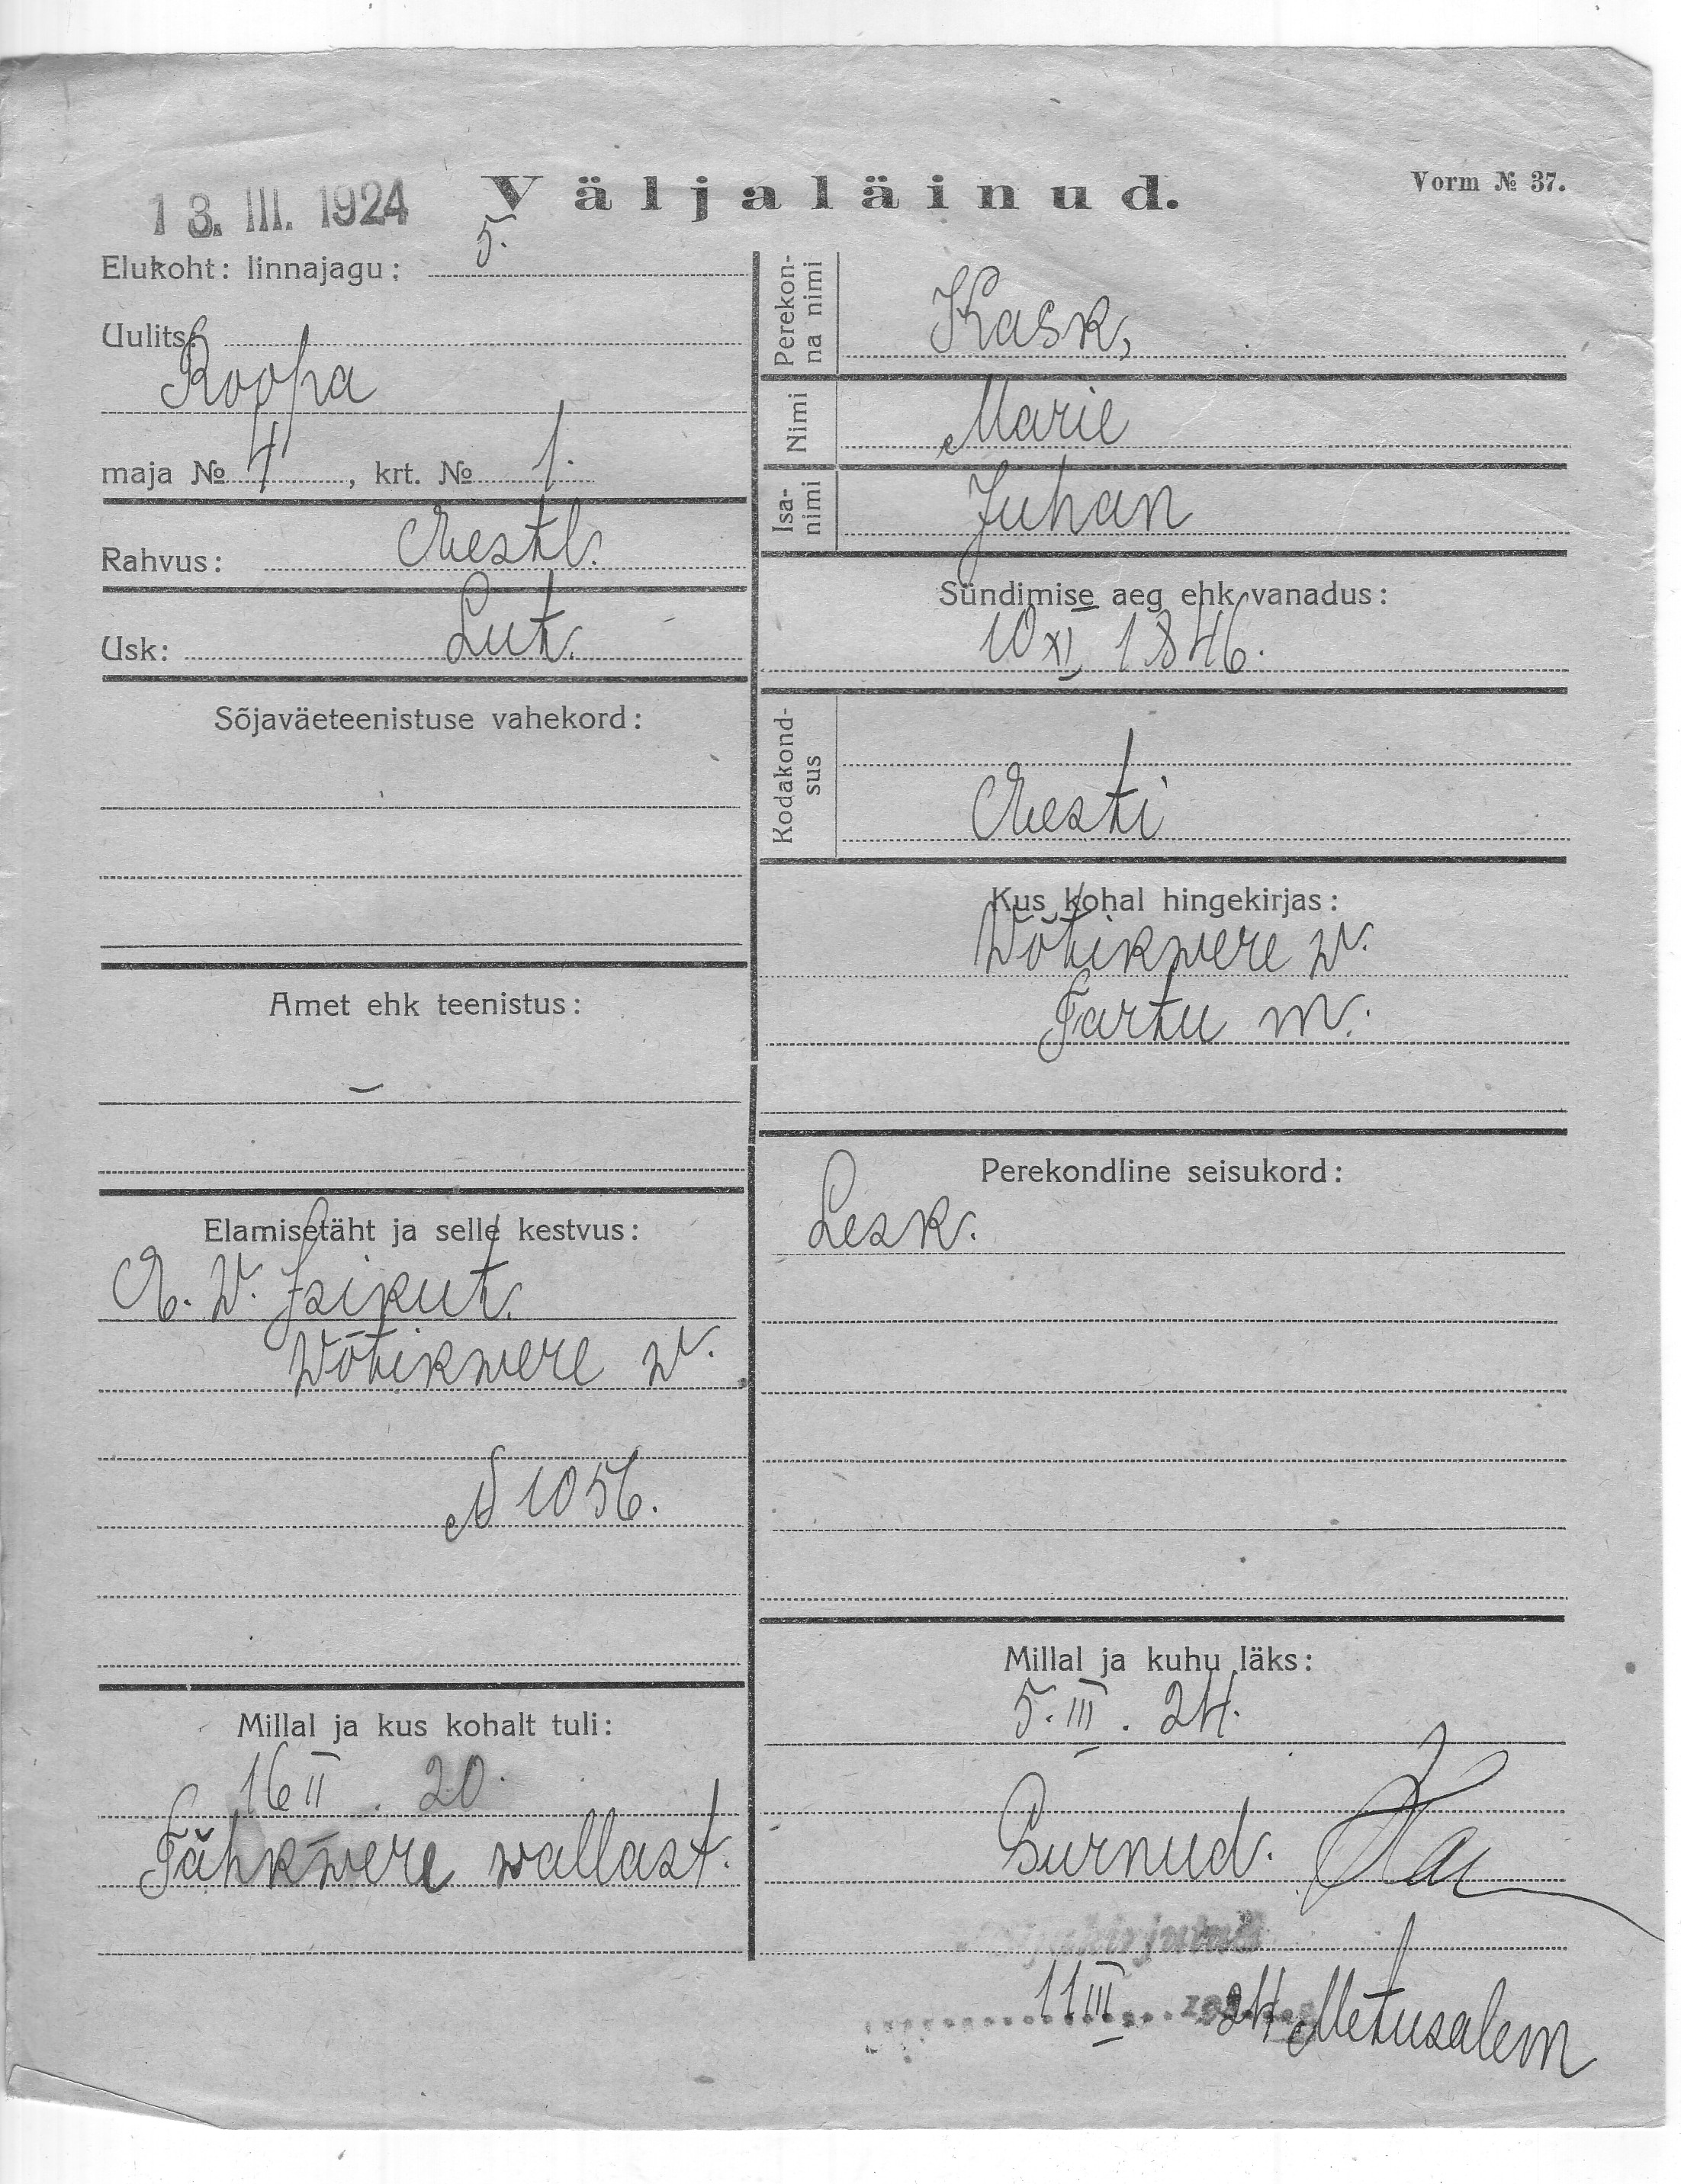 13. III. 1924
Väljaläinud.
Vorm № 37.
Elukoht: linnajagu: 5.
Uulits:
Roopa
maja № 4, krt. № 1.
Rahvus: Eestl.
Usk: Lut.
Sõjaväeteenistuse vahekord:
Amet ehk teenistus:
–
Elamisetäht ja selle kestvus:
E. W. Isikut.
Wõtikwere w.
№ 1056.
Millal ja kus kohalt tuli:
16 II. 20.
Tähkwere wallast.
Perekon-
na nimi
Kask,
Nimi
Marie
Isa-
nimi
Juhan
Sündimise aeg ehk vanadus:
10 XI 1846.
Kodakond-
sus
Eesti
Kus kohal hingekirjas:
Wõtikwere w.
Tartu m.
Perekondline seisukord:
Lesk.
Millal ja kuhu läks:
5. III. 24.
Surnud.
11 III 24 Metusalem